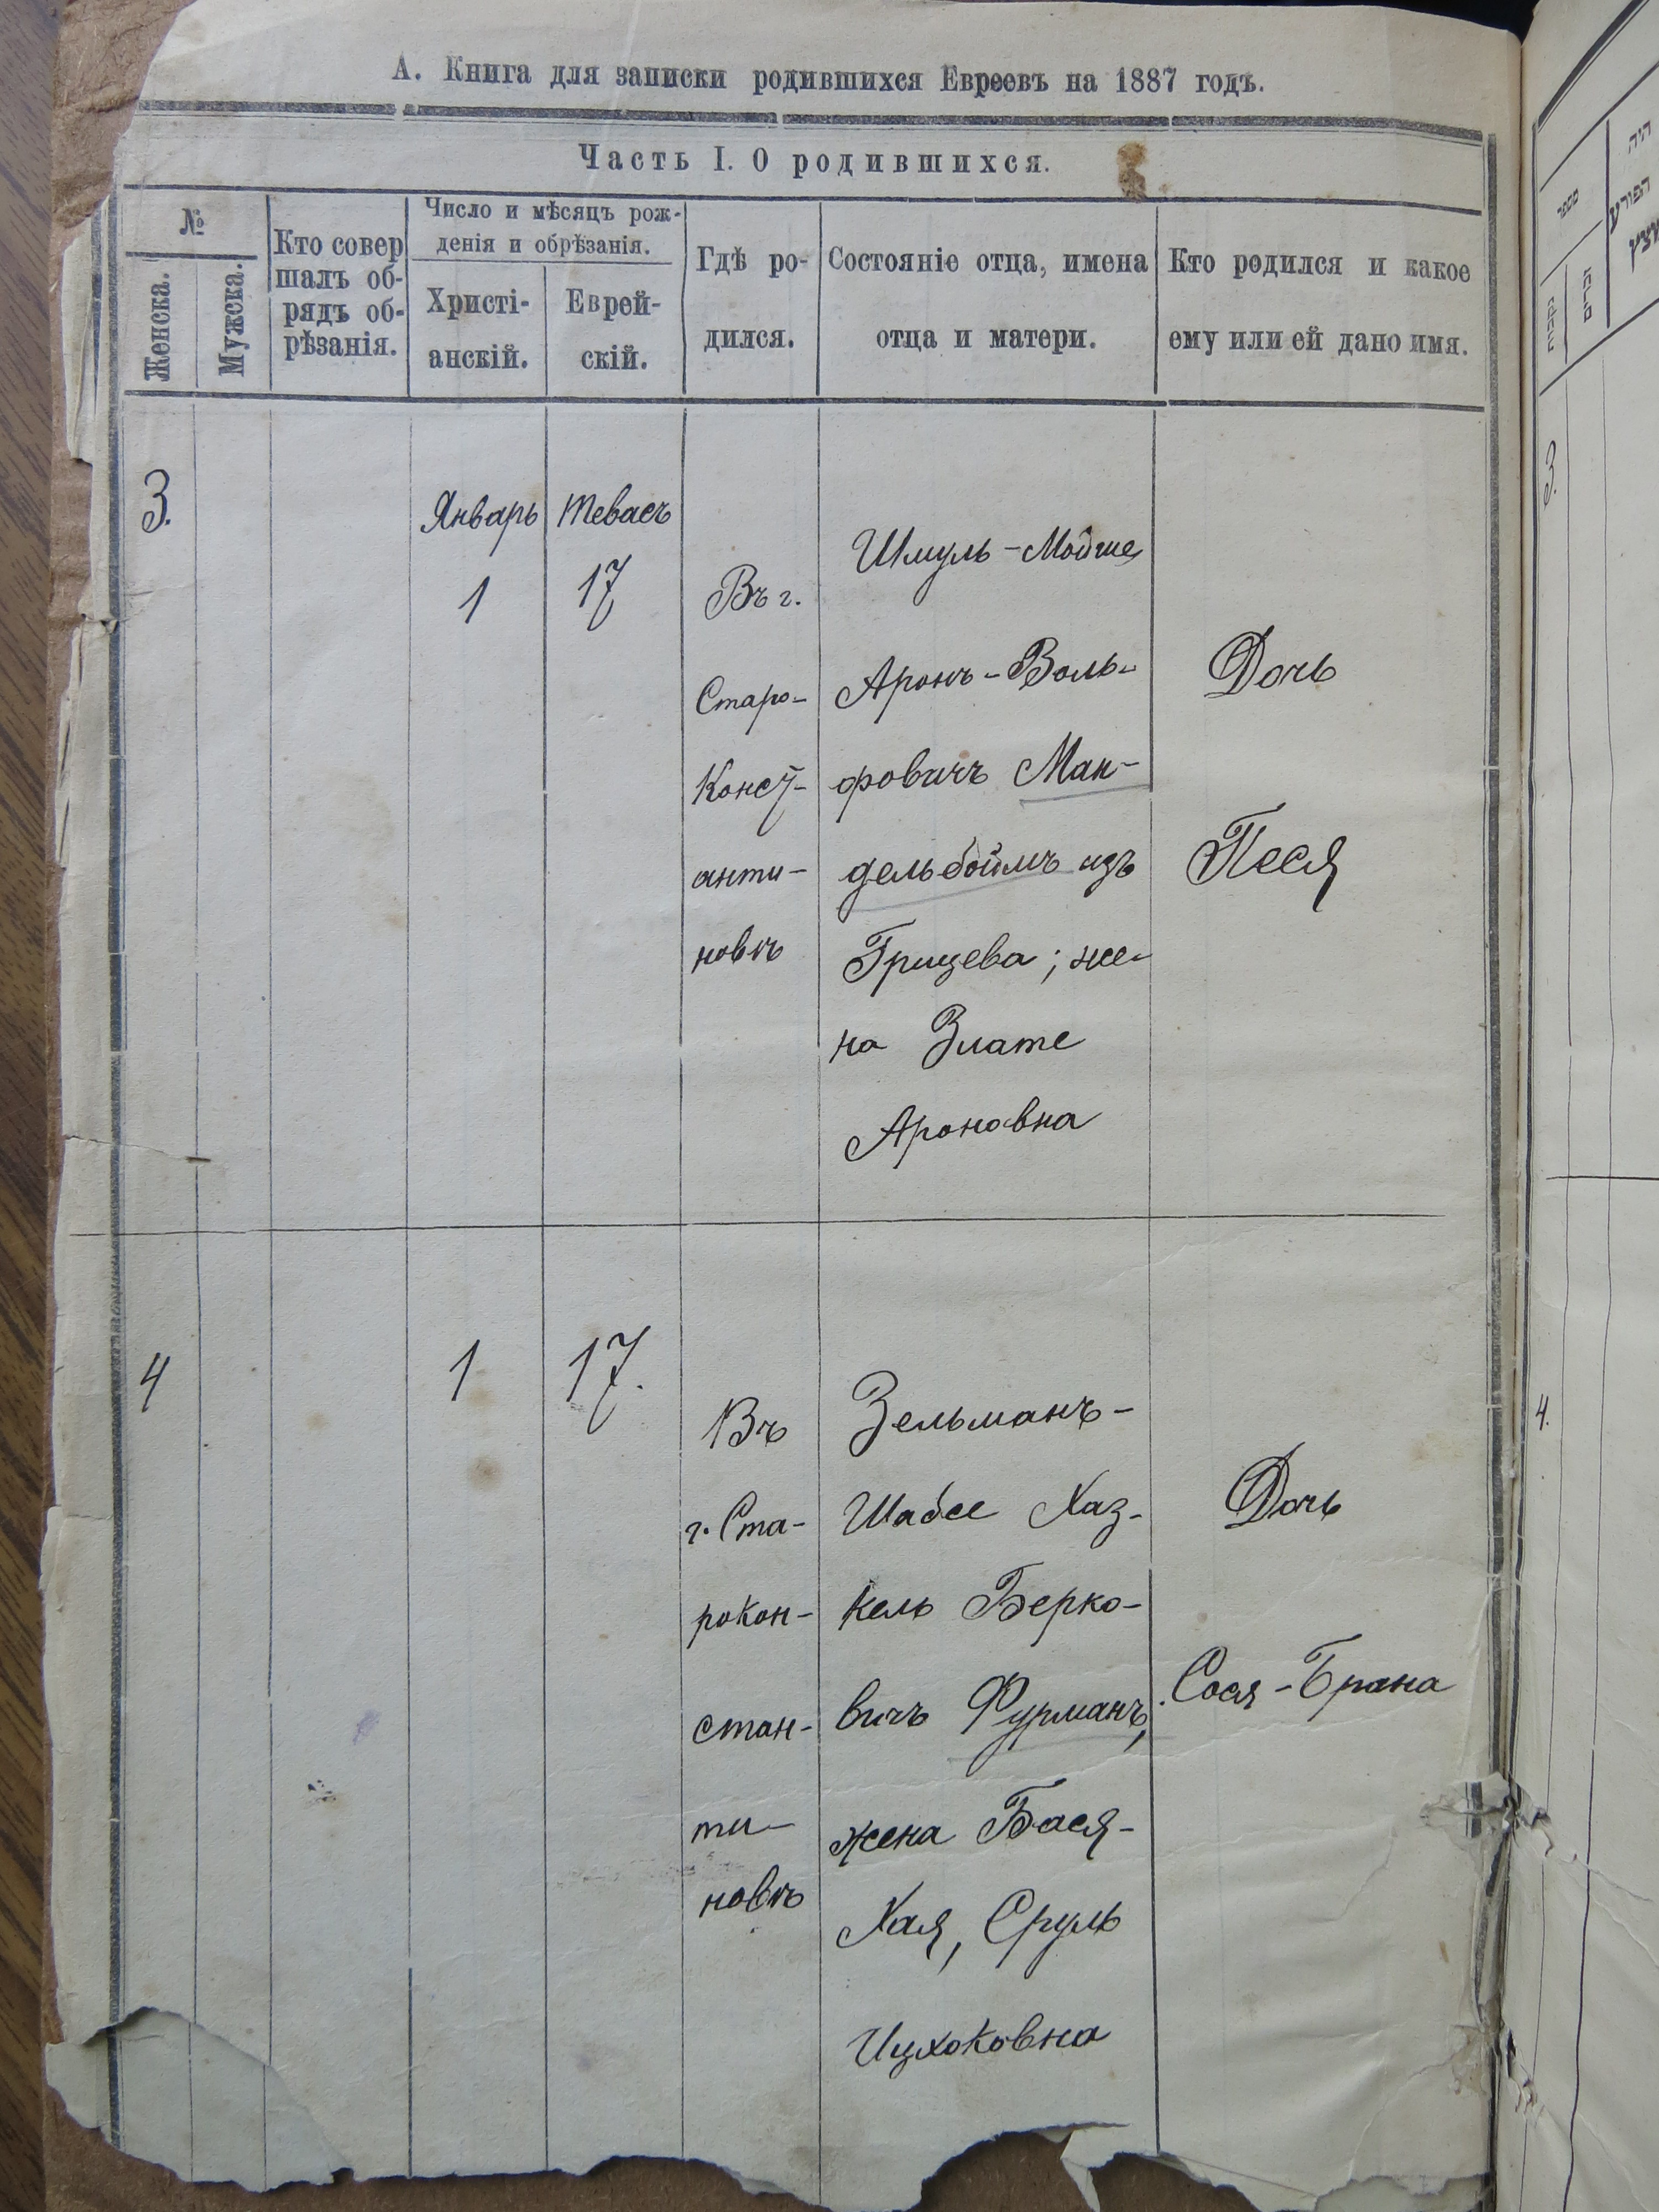 А. Книга для записки родившихся Евреевъ на 1887 годъ.
Часть I. О родившихся.
№
Женска.
Мужска.
Кто совер
шалъ об-
рядъ об-
рѣзанія.
Число и мѣсяцъ рож-
денія и обрѣзанія.
Христі-
анскій.
Еврей-
скій.
Гдѣ ро-
дился.
Состояніе отца, имена
отца и матери.
Кто родился и какое
ему или ей дано имя.
3.
Январь
1
Тевасъ
17
Въ г.
Старо-
Конст-
анти-
новѣ
Шмуль-Мойше
Аронъ-Воль-
фовичъ Ман-
дельбоймъ изъ
Грицева; же-
на Злате
Ароновна
Дочь
Песя
4
1
17.
Въ
г. Ста-
рокон-
стан-
ти-
новѣ
Зельманъ-
Шабсе Хаз-
кель Берко-
вичъ Фурманъ,
жена Бася-
Хая, Сруль
Ицхоковна
Дочь
Сося-Брана
מספר
נקבות
זכרים
היה
הפורע
3.
4.